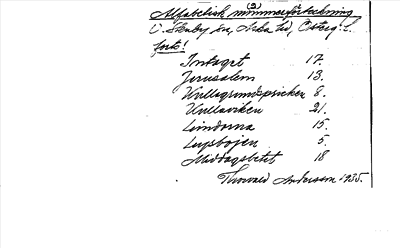 (2)
Alfabetisk nummerförteckning
i Skenby sn, Aska hd, Österg. l.
forts!
Intaget 17.
Jerusalem 13.
Kullagrundspricken 8.
Kullaviken 21.
Limdorna 15.
Lusbojen 5.
Middagsbetet 18
Thorvald Andersson 1935.